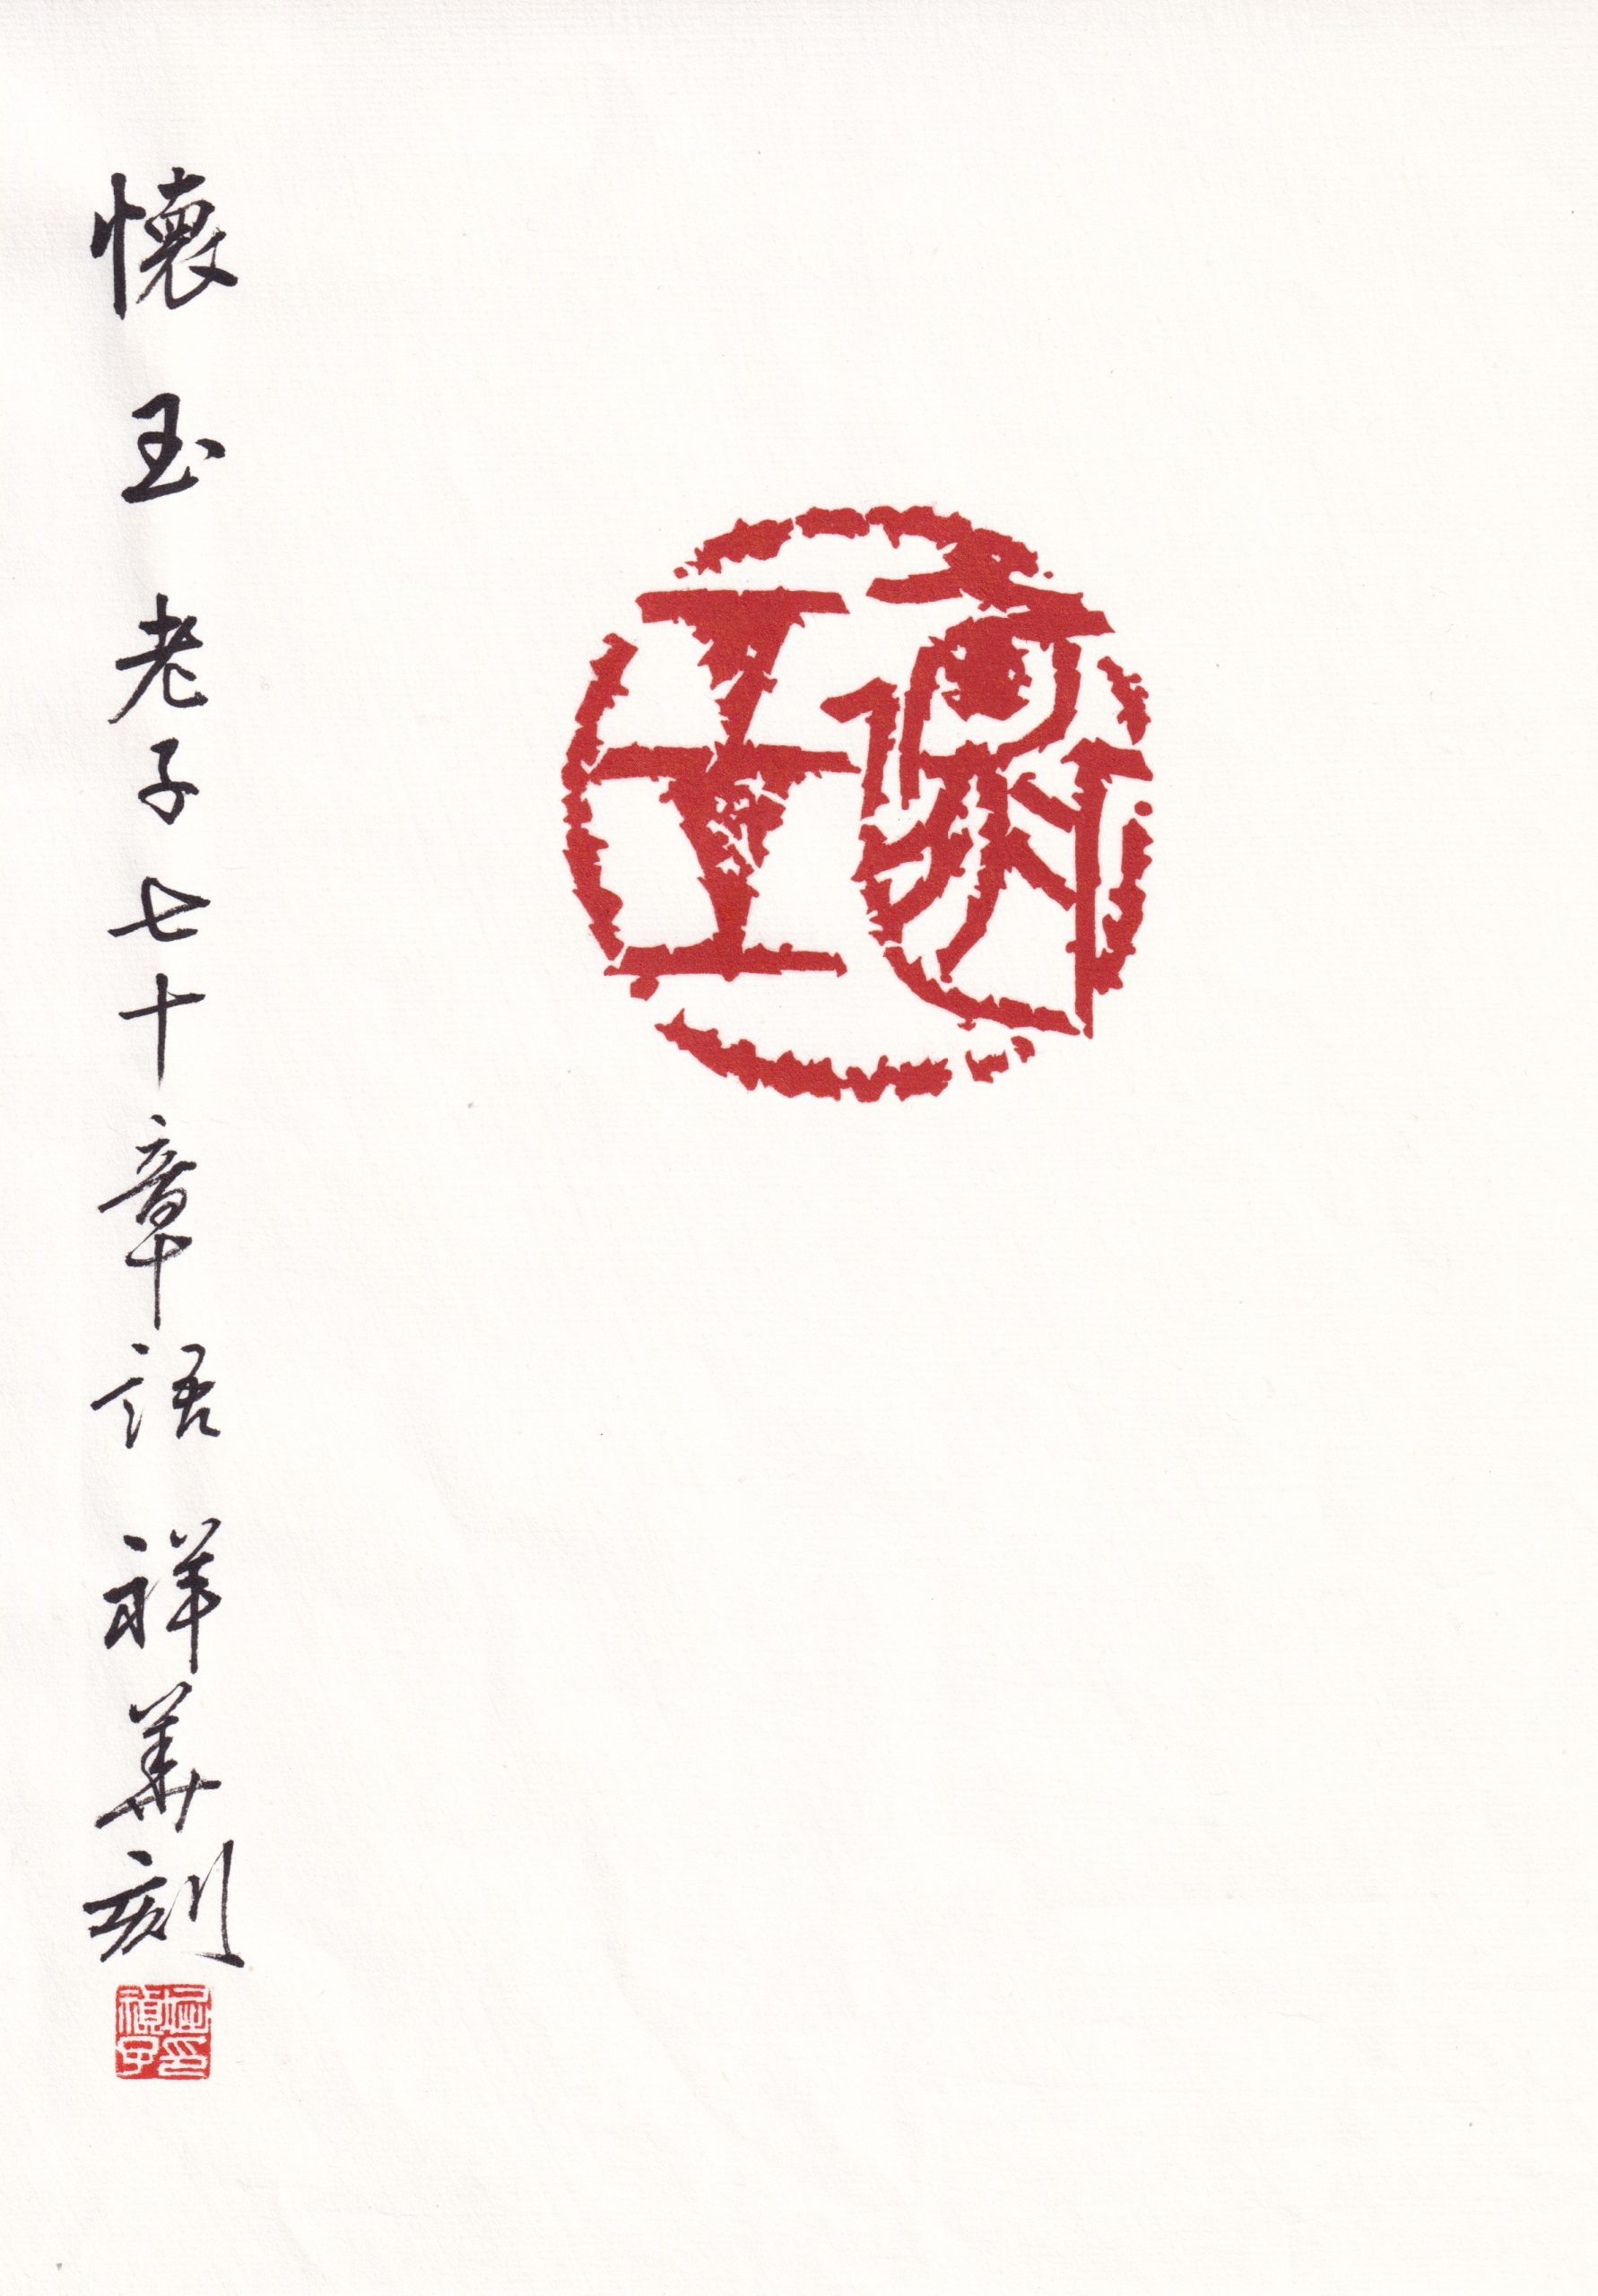 懷玉
懷玉 老子七十章語 祥華刻